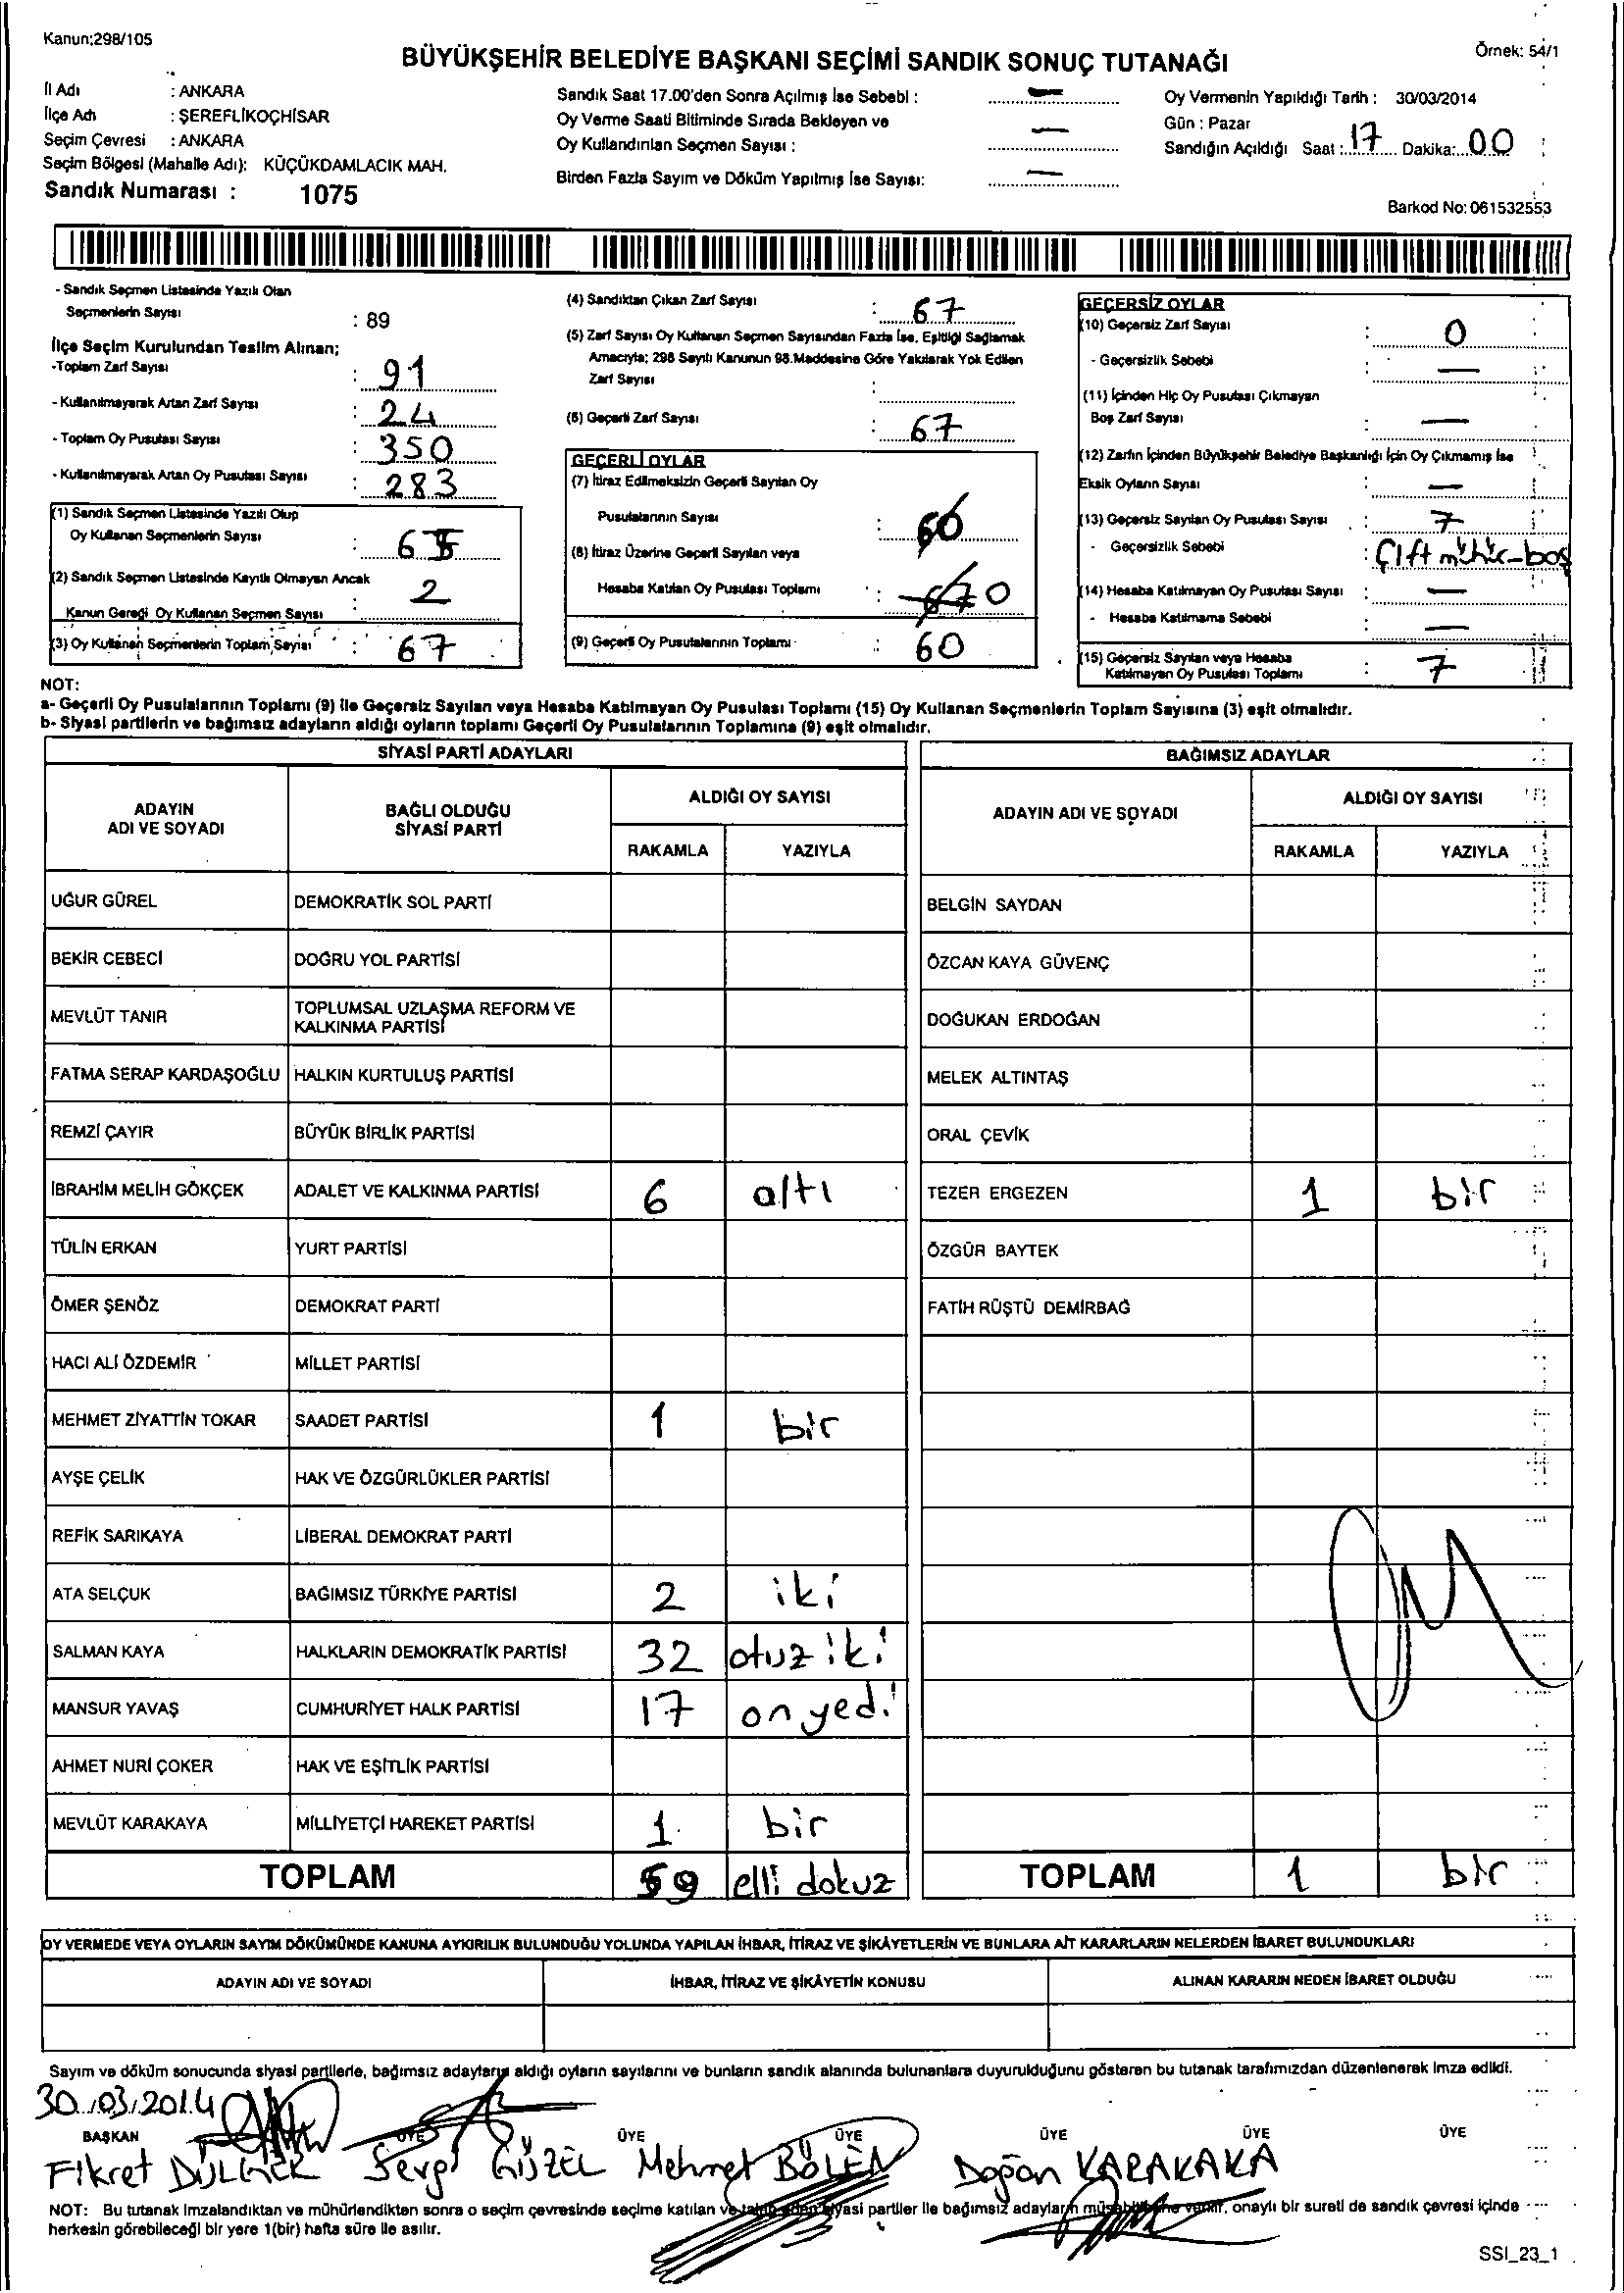 Kanun;298/105
BÜYÜKŞEHİR BELEDİYE BAŞKANI SEÇİMİ SANDIK SONUÇ TUTANAĞI
Örnek: 54/1
İl Adı : ANKARA
İlçe Adı : ŞEREFLİKOÇHİSAR
Seçim Çevresi : ANKARA
Seçim Bölgesi (Mahalle Adı): KÜÇÜKDAMLACIK MAH.
Sandık Numarası : 1075
Sandık Saat 17.00'den Sonra Açılmış İse Sebebi : —
Oy Verme Saati Bitiminde Sırada Bekleyen ve
Oy Kullandırılan Seçmen Sayısı : —
Birden Fazla Sayım ve Döküm Yapılmış İse Sayısı: —
Oy Vermenin Yapıldığı Tarih : 30/03/2014
Gün : Pazar
Sandığın Açıldığı Saat : 17 Dakika: 00
Barkod No: 061532553
- Sandık Seçmen Listesinde Yazılı Olan
Seçmenlerin Sayısı : 89
İlçe Seçim Kurulundan Teslim Alınan;
-Toplam Zarf Sayısı : 91
- Kullanılmayarak Artan Zarf Sayısı : 24
- Toplam Oy Pusulası Sayısı : 350
- Kullanılmayarak Artan Oy Pusulası Sayısı : 283
(1) Sandık Seçmen Listesinde Yazılı Olup
Oy Kullanan Seçmenlerin Sayısı : 65
(2) Sandık Seçmen Listesinde Kayıtlı Olmayan Ancak
Kanun Gereği Oy Kullanan Seçmen Sayısı : 2
(3) Oy Kullanan Seçmenlerin Toplam Sayısı : 67
(4) Sandıktan Çıkan Zarf Sayısı : 67
(5) Zarf Sayısı Oy Kullanan Seçmen Sayısından Fazla İse, Eşitliği Sağlamak
Amacıyla; 298 Sayılı Kanunun 98.Maddesine Göre Yakılarak Yok Edilen
Zarf Sayısı :
(6) Geçerli Zarf Sayısı : 67
GEÇERLİ OYLAR
(7) İtiraz Edilmeksizin Geçerli Sayılan Oy
Pusulalarının Sayısı : 60
(8) İtiraz Üzerine Geçerli Sayılan veya
Hesaba Katılan Oy Pusulası Toplamı : 0
(9) Geçerli Oy Pusulalarının Toplamı : 60
GEÇERSİZ OYLAR
(10) Geçersiz Zarf Sayısı : 0
- Geçersizlik Sebebi : —
(11) İçinden Hiç Oy Pusulası Çıkmayan
Boş Zarf Sayısı : —
(12) Zarfın İçinden Büyükşehir Belediye Başkanlığı İçin Oy Çıkmamış İse
Eksik Oyların Sayısı : —
(13) Geçersiz Sayılan Oy Pusulası Sayısı : 7
- Geçersizlik Sebebi : Çift mühür-boş
(14) Hesaba Katılmayan Oy Pusulası Sayısı : —
- Hesaba Katılmama Sebebi : —
(15) Geçersiz Sayılan veya Hesaba
Katılmayan Oy Pusulası Toplamı : 7
NOT:
a- Geçerli Oy Pusulalarının Toplamı (9) ile Geçersiz Sayılan veya Hesaba Katılmayan Oy Pusulası Toplamı (15) Oy Kullanan Seçmenlerin Toplam Sayısına (3) eşit olmalıdır.
b- Siyasi partilerin ve bağımsız adayların aldığı oyların toplamı Geçerli Oy Pusulalarının Toplamına (9) eşit olmalıdır.
SİYASİ PARTİ ADAYLARI
ADAYIN ADI VE SOYADI
BAĞLI OLDUĞU SİYASİ PARTİ
ALDIĞI OY SAYISI
RAKAMLA YAZIYLA
UĞUR GÜREL DEMOKRATİK SOL PARTİ
BEKİR CEBECİ DOĞRU YOL PARTİSİ
MEVLÜT TANIR TOPLUMSAL UZLAŞMA REFORM VE
KALKINMA PARTİSİ
FATMA SERAP KARDAŞOĞLU HALKIN KURTULUŞ PARTİSİ
REMZİ ÇAYIR BÜYÜK BİRLİK PARTİSİ
İBRAHİM MELİH GÖKÇEK ADALET VE KALKINMA PARTİSİ 6 altı
TÜLİN ERKAN YURT PARTİSİ
ÖMER ŞENÖZ DEMOKRAT PARTİ
HACI ALİ ÖZDEMİR MİLLET PARTİSİ
MEHMET ZİYATTİN TOKAR SAADET PARTİSİ 1 bir
AYŞE ÇELİK HAK VE ÖZGÜRLÜKLER PARTİSİ
REFİK SARIKAYA LİBERAL DEMOKRAT PARTİ
ATA SELÇUK BAĞIMSIZ TÜRKİYE PARTİSİ 2 iki
SALMAN KAYA HALKLARIN DEMOKRATİK PARTİSİ 32 otuz iki
MANSUR YAVAŞ CUMHURİYET HALK PARTİSİ 17 on yedi
AHMET NURİ ÇOKER HAK VE EŞİTLİK PARTİSİ
MEVLÜT KARAKAYA MİLLİYETÇİ HAREKET PARTİSİ 1 bir
TOPLAM 59 elli dokuz
BAĞIMSIZ ADAYLAR
ADAYIN ADI VE SOYADI
ALDIĞI OY SAYISI
RAKAMLA YAZIYLA
BELGİN SAYDAN
ÖZCAN KAYA GÜVENÇ
DOĞUKAN ERDOĞAN
MELEK ALTINTAŞ
ORAL ÇEVİK
TEZER ERGEZEN 1 bir
ÖZGÜR BAYTEK
FATİH RÜŞTÜ DEMİRBAĞ
TOPLAM 1 bir
OY VERMEDE VEYA OYLARIN SAYIM DÖKÜMÜNDE KANUNA AYKIRILIK BULUNDUĞU YOLUNDA YAPILAN İHBAR, İTİRAZ VE ŞİKÂYETLERİN VE BUNLARA AİT KARARLARIN NELERDEN İBARET BULUNDUKLARI
ADAYIN ADI VE SOYADI İHBAR, İTİRAZ VE ŞİKÂYETİN KONUSU ALINAN KARARIN NEDEN İBARET OLDUĞU
Sayım ve döküm sonucunda siyasi partilerle, bağımsız adayların aldığı oyların sayılarını ve bunların sandık alanında bulunanlara duyurulduğunu gösteren bu tutanak tarafımızdan düzenlenerek imza edildi.
30.03.2014
BAŞKAN ÜYE ÜYE ÜYE ÜYE ÜYE ÜYE
Fikret DÜLGER Sevgi GÜZEL Mehmet BÖLEN Doğan KARAKAKA
NOT: Bu tutanak imzalandıktan ve mühürlendikten sonra o seçim çevresinde seçime katılan ve talep eden siyasi partiler ile bağımsız adayların müşahitlerine verilir, onaylı bir sureti de sandık çevresi içinde
herkesin görebileceği bir yere 1(bir) hafta süre ile asılır.
SSI_23_1